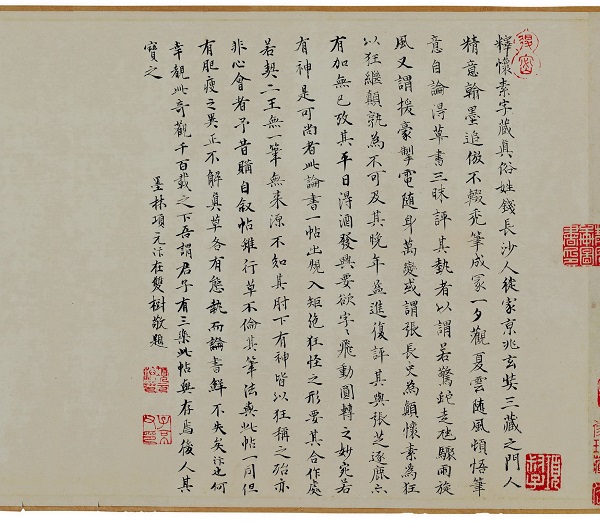 釋懷素字藏真俗姓錢長沙人徙家京兆玄奘三藏之門人
精意翰墨追倣不輟禿筆成冢一夕觀夏雲随風頓悟筆
意自論得草書三昧評其埶者以謂若驚蛇走虺驟雨旋
風又謂援豪掣電随身萬變或謂張長史為顛懷素為狂
以狂繼顛孰為不可及其晚年益進復評其與張芝逐鹿亦
有加無已故其平日得酒發興要欲字〻飛動圓轉之妙宛若
有神是可尚者此論書一帖出規入矩絶狂怪之形要其合作處
若契二王無一筆無来源不知其肘下有神皆以狂稱之殆亦
非心會者予昔購自叙帖雖行草不倫其筆法與此帖一同但
有肥瘦之異正不解真草各有態埶而論書鮮不失矣汴何
幸覩此奇觀千百載之下吾謂君子有三樂此帖與存焉後人其
寶之
墨林項元汴在雙樹敬題
項元汴印
子京父印
項叔子